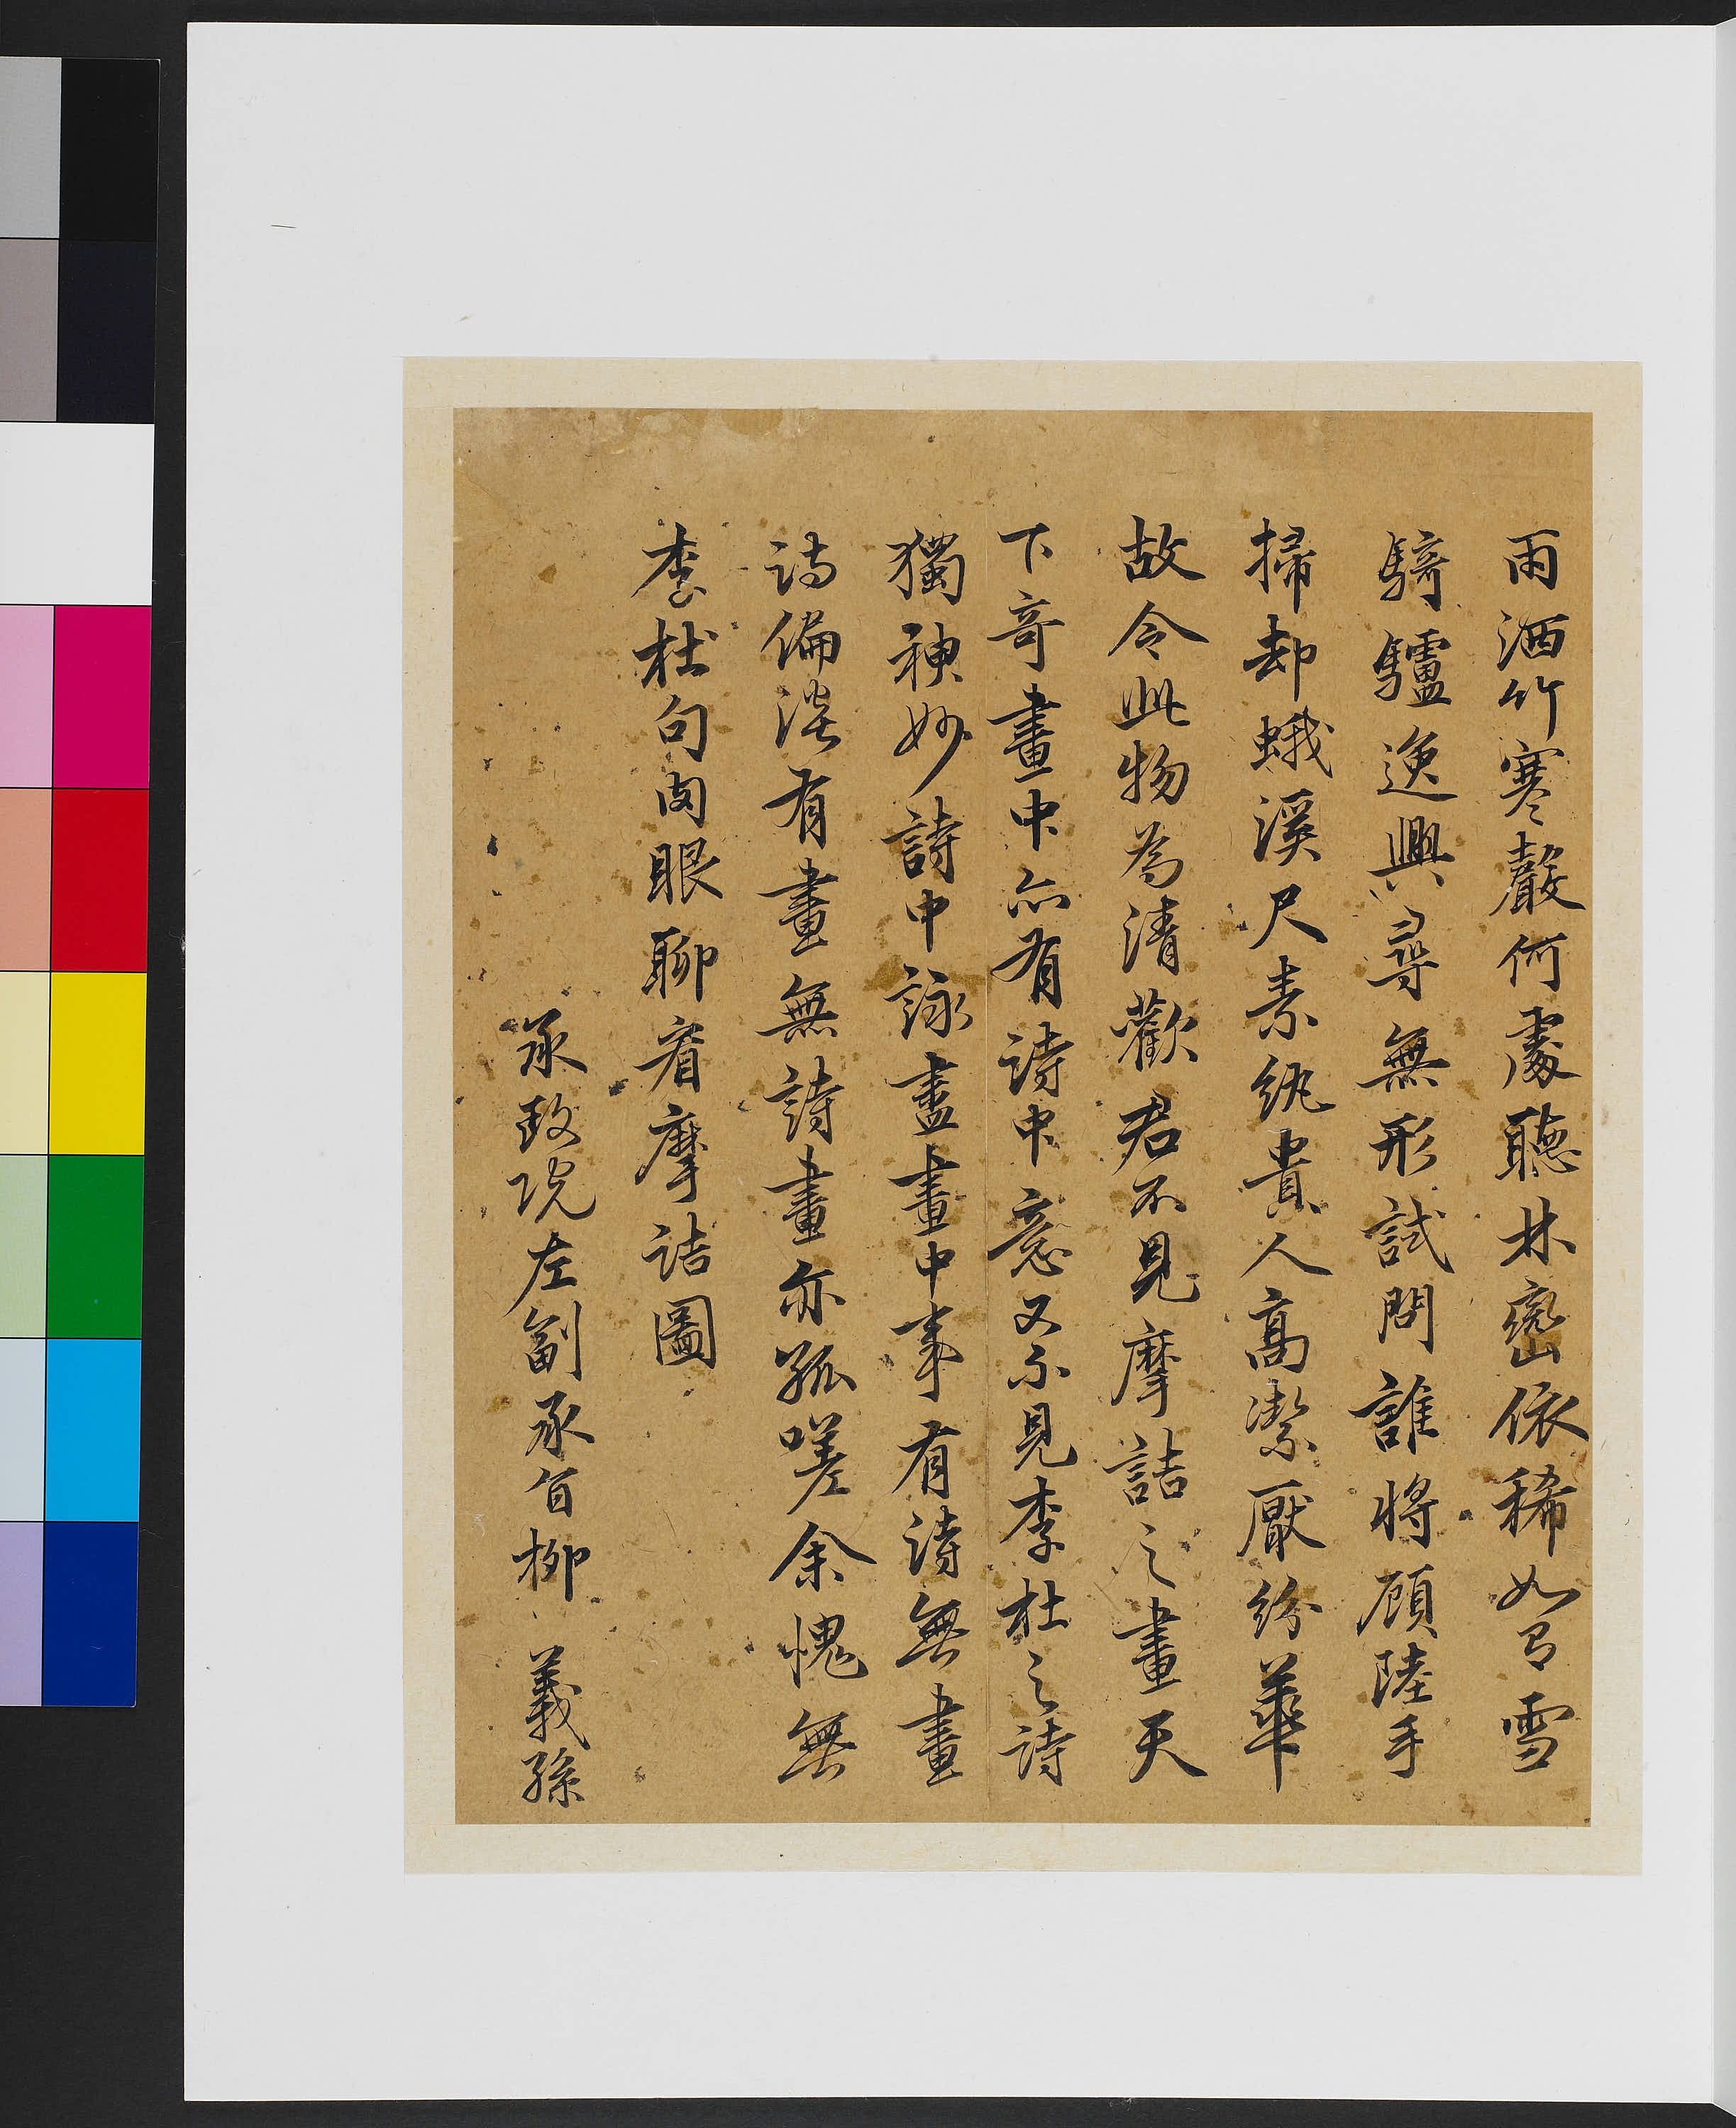 雨洒竹寒聲何處聽林巒依稀如有雪
騎驢逸興尋無形試問誰將顧陸手
掃却蛾溪尺素紈貴人高潔厭紛華
故令此物為清歡君不見摩詰之畫天
下奇畫中亦有詩中意又不見李杜之詩
獨神妙詩中詠盡畫中事有詩無畫
詩偏淡有畫無詩畫亦孤嗟余愧無
李杜句肉眼聊看摩詰圖
承政院左副承旨柳義孫